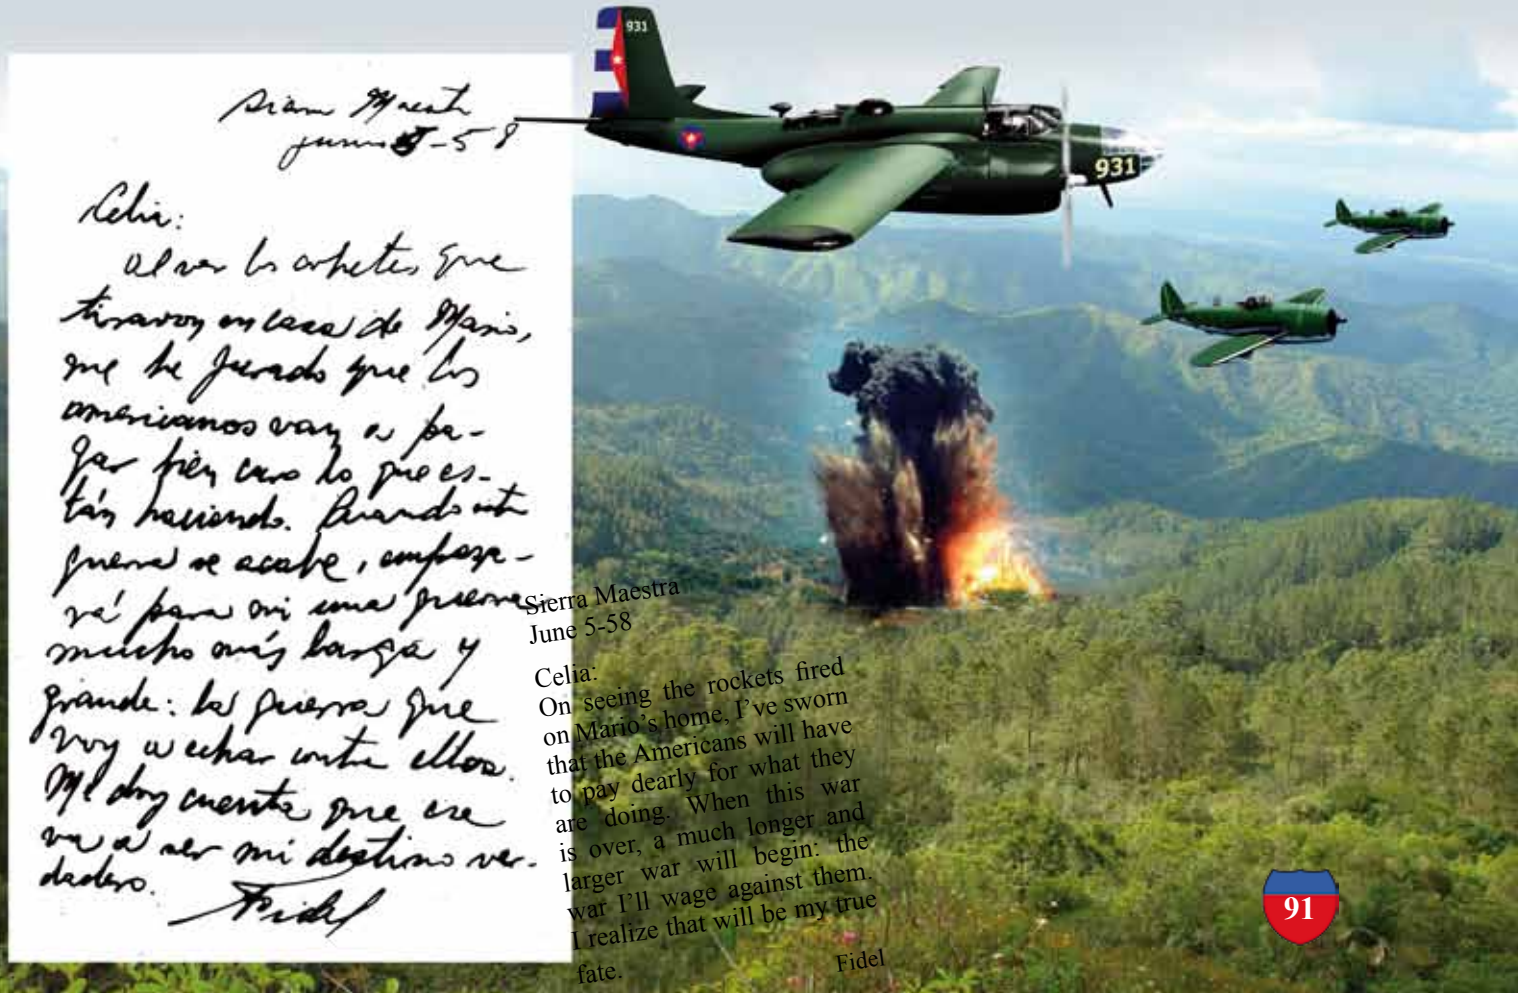 931
931
Sierra Maestra
junio 5-58
Celia:
Al ver los cohetes que
tiraron en casa de Mario,
me he jurado que los
americanos van a pa-
gar bien caro lo que es-
tán haciendo. Cuando esta
guerra se acabe, empeza-
rá para mi una guerra
mucho más larga y
grande: la guerra que
voy a echar contra ellos.
Me doy cuenta que ese
va a ser mi destino ver-
dadero.
Fidel
Sierra Maestra
June 5-58
Celia:
On seeing the rockets fired
on Mario's home, I've sworn
that the Americans will have
to pay dearly for what they
are doing. When this war
is over, a much longer and
larger war will begin: the
war I'll wage against them.
I realize that will be my true
fate.
Fidel
91